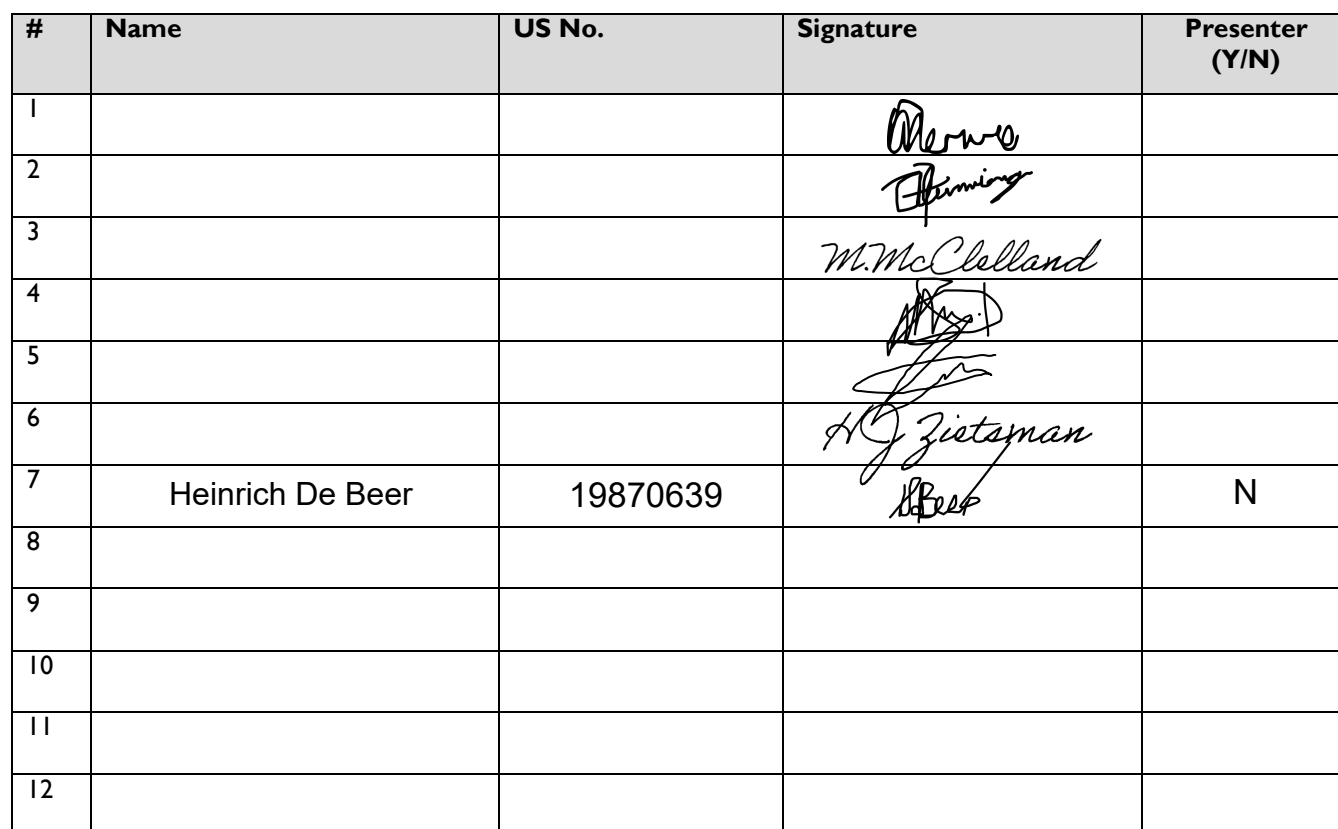 # Name US No. Signature Presenter
(Y/N)
1
2
3 M.McClelland
4
5
6 HJ Zietsman
7 Heinrich De Beer 19870639 N
8
9
10
11
12